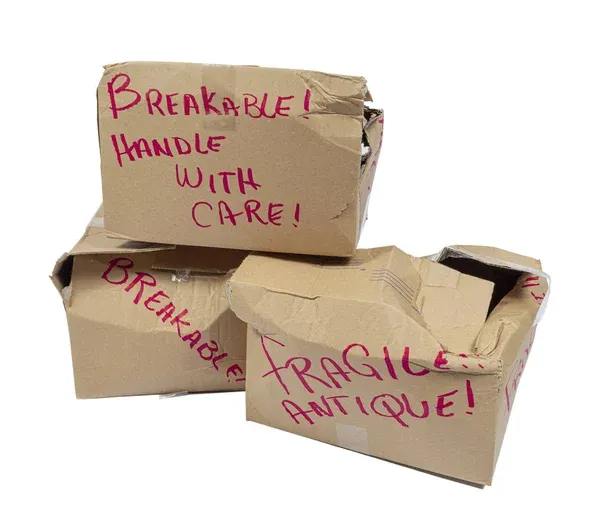 BREAKABLE!
HANDLE
WITH
CARE!
BREAKABLE!
FRAGILE!!
ANTIQUE!